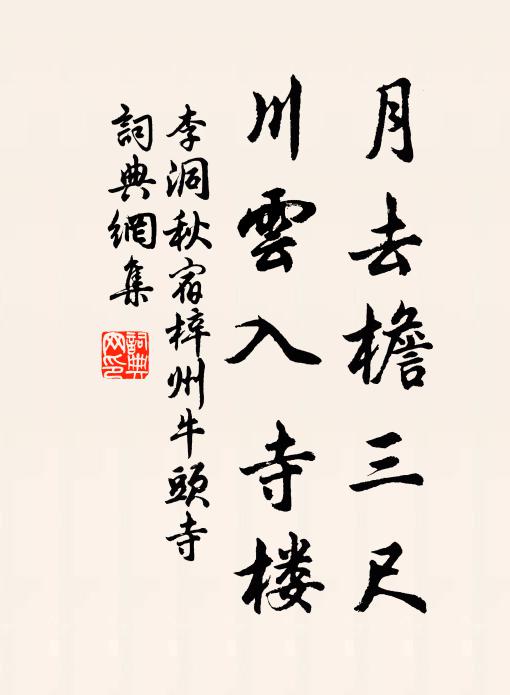 月去檐三尺
川雲入寺楼
李洞秋宿梓州牛頭寺
詞典網集
詞典网印